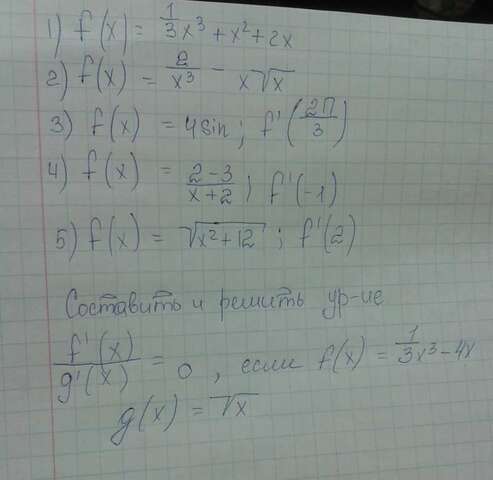 1) f(x) = 1/3 x³ + x² + 2x
2) f(x) = 2/x³ - x√x
3) f(x) = 4sin; f'(2П/3)
4) f(x) = 2-3/x+2; f'(-1)
5) f(x) = √x²+12; f'(2)
Составить и решить ур-ие
f'(x)/g'(x) = 0, если f(x) = 1/3 x³ - 4x
g(x) = √x